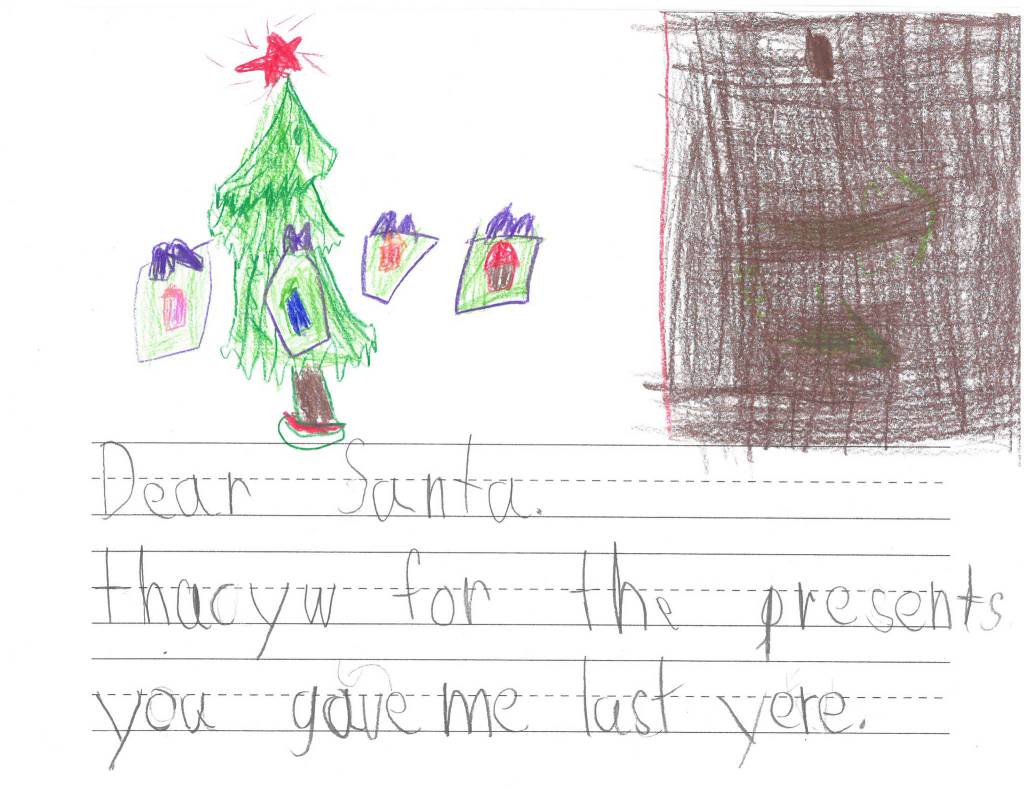 Dear Santa.
thacyw for the presents
you gave me last yere.